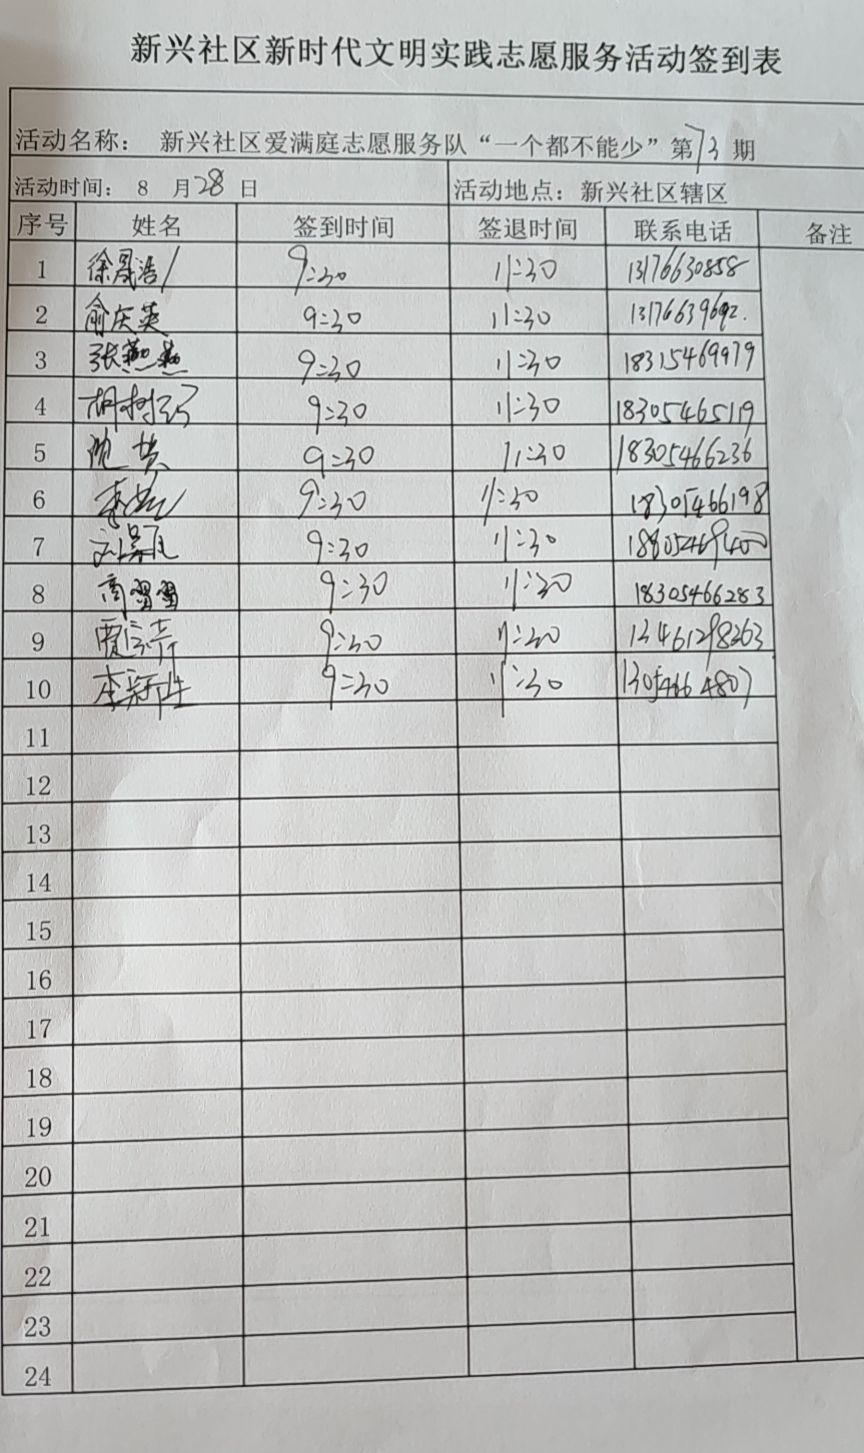 新兴社区新时代文明实践志愿服务活动签到表
活动名称： 新兴社区爱满庭志愿服务队“一个都不能少”第73期
活动时间： 8 月28日 活动地点：新兴社区辖区
序号 姓名 签到时间 签退时间 联系电话 备注
1 徐晟浩 9:30 11:30 13176630858
2 俞庆英 9:30 11:30 13176639692.
3 张燕燕 9:30 11:30 18315469979
4 胡树巧 9:30 11:30 18305465119
5 9:30 11:30 18305466236
6 9:30 11:30 18305466198
7 9:30 11:30
8 高翠翠 9:30 11:30 18305466283
9 9:30 11:30 13461298263
10 9:30 11:30 13054664807
11
12
13
14
15
16
17
18
19
20
21
22
23
24